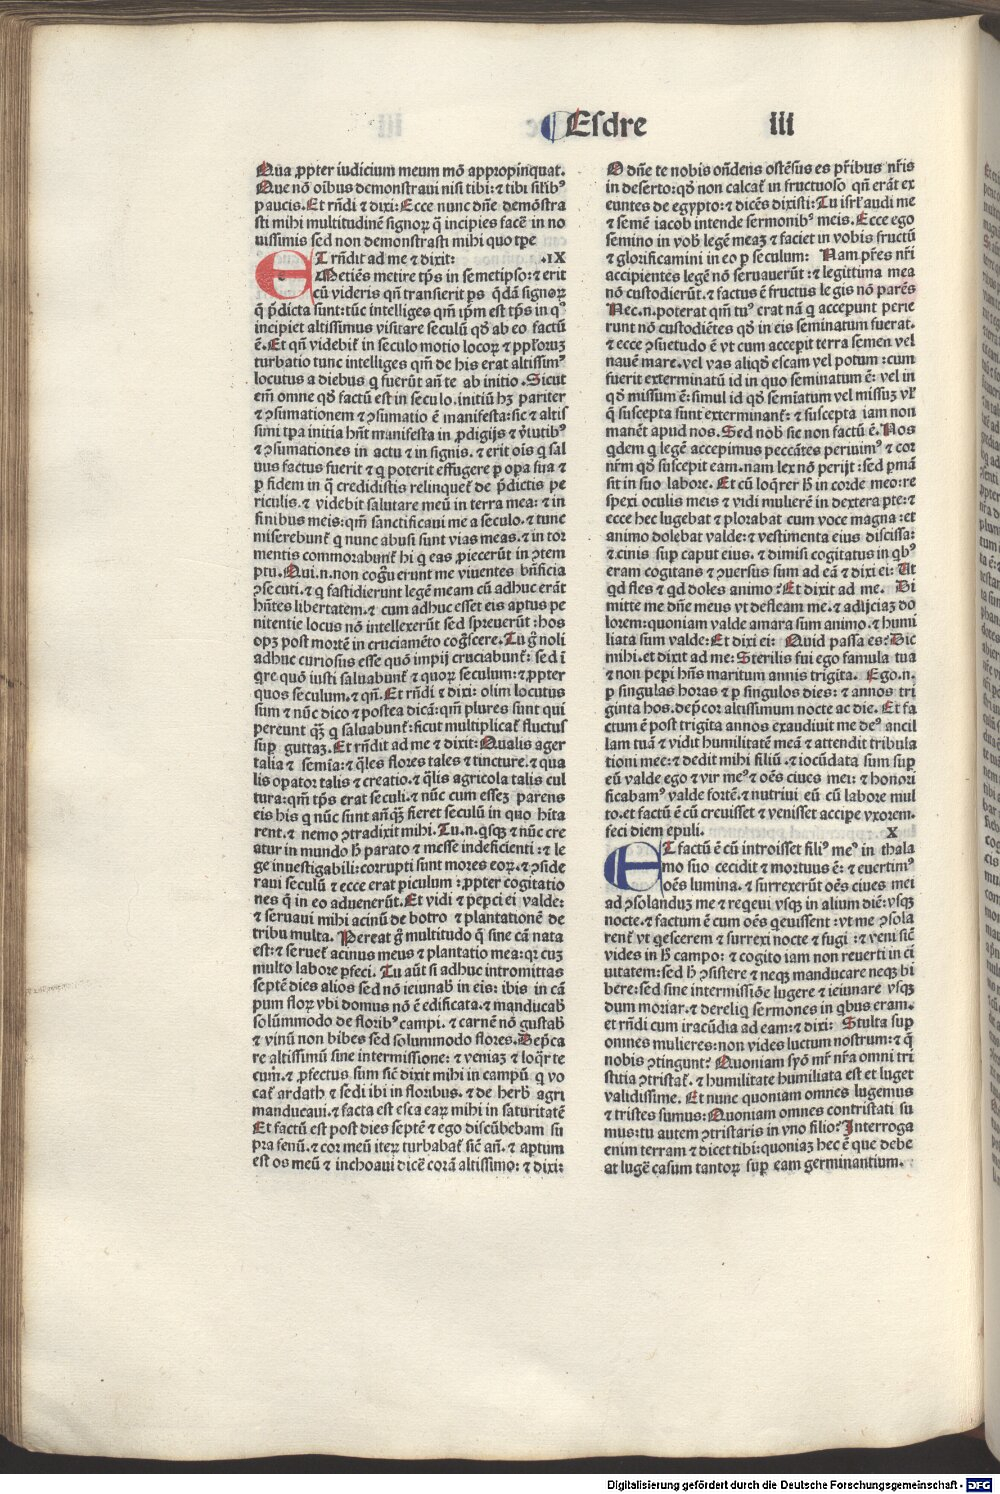 Esdre iii
Qua ꝓpter iudicium meum mō appropinquat.
Que nō oībus demonstraui nisi tibi: ⁊ tibi sīlibꝰ
paucis. Et rn̄di ⁊ dixi: Ecce nunc dn̄e demōstra
sti mihi multitudinē signoꝝ q̄ incipies facē in no
uissimis sed non demonstrasti mihi quo tp̄e
ET rn̄dit ad me ⁊ dixit: .IX
Metiēs metire tp̄s in semetipso: ⁊ erit
cū videris qn̄ transierit ps q̄dā signoꝝ
q̄ p̄dicta sunt: tūc intelliges qm̄ ip̄m est tp̄s in qͦ
incipiet altissimus visitare seculū qd̄ ab eo factū
ē. Et qn̄ videbit̄ in seculo motio locoꝝ ⁊ ppl̄oꝝ
turbatio tunc intelliges qm̄ de his erat altissimꝰ
locutus a diebus q fuerūt an̄ te ab initio. Sicut
em̄ omne qd̄ factū est in seculo. initiū hꝫ pariter
⁊ ꝯsumationem ⁊ ꝯsumatio ē manifesta: sic ⁊ altis
simi tp̄a initia hn̄t manifesta in ꝓdigijs ⁊ v̄tutibꝰ
⁊ ꝯsumationes in actu ⁊ in signis. ⁊ erit ois q sal
uus factus fuerit ⁊ q poterit effugere ꝑ opa sua ⁊
ꝑ fidem in q̄ credidistis relinquet̄ de p̄dictis pe
riculis. ⁊ videbit salutare meū in terra mea: ⁊ in
finibus meis: qm̄ sanctificaui me a seculo. ⁊ tunc
miserebunt̄ q nunc abusi sunt vias meas. ⁊ in tor
mentis commorabunt̄ hi q eas ꝓiecerūt in ꝯtem
ptu. Qui.n.non cogn̄uerunt me viuentes bn̄ficia
ꝯsecuti. ⁊ q fastidierunt legē meam cū adhuc erāt
hn̄tes libertatem. ⁊ cum adhuc esset eis aptus pe
nitentie locus nō intellexerūt sed spreuerūt: hos
opꝫ post mortē in cruciamēto cogn̄scere. Tu g̊ noli
adhuc curiosus esse quō impij cruciabunt̄: sed ī
q̄re quō iusti saluabunt̄ ⁊ quoꝝ seculum: ⁊ ꝓpter
quos seculum. ⁊ qn̄. Et rn̄di ⁊ dixi: olim locutus
sum ⁊ nūc dico ⁊ postea dicā: qm̄ plures sunt qui
pereunt qꝫ q saluabunt̄: sicut multiplicat̄ fluctus
suꝑ guttaꝫ. Et rn̄dit ad me ⁊ dixit: Qualis ager
talia ⁊ semīa: ⁊ q̄les flores tales ⁊ tincture. ⁊ qua
lis opator talis ⁊ creatio. ⁊ q̄lis agricola talis cul
tura: qm̄ tp̄s erat seculi. ⁊ nūc cum esseꝫ parens
eis his q nūc sunt anq̄ꝫ fieret seculū in quo hita
rent. ⁊ nemo ꝯtradixit mihi. Tu.n.qsqꝫ ⁊ nūc cre
atur in mundo h̄ parato ⁊ messe indeficienti: ⁊ le
ge inuestigabili: corrupti sunt mores eoꝝ. ⁊ ꝯside
raui seculū ⁊ ecce erat piculum: ꝓpter cogitatio
nes q̄ in eo aduenerūt. Et vidi ⁊ peꝑci ei valde:
⁊ seruaui mihi acinū de botro ⁊ plantationē de
tribu multa. Pereat g̊ multitudo q̄ sine cā nata
est: ⁊ seruet̄ acinus meus ⁊ plantatio mea: qꝛ cuꝫ
multo labore ꝑfeci. Tu aūt si adhuc intromittas
septē dies alios sed nō ieiunab̄ in eis: ibis in cā
pum floꝝ vbi domus nō ē edificata. ⁊ manducab̄
solūmmodo de floribꝰ campi. ⁊ carnē nō gustab̄
⁊ vinū non bibes sed solummodo flores. Dep̄ca
re altissimū sine intermissione: ⁊ veniaꝫ ⁊ loq̄r te
cum. ⁊ ꝓfectus sum sic̄ dixit mihi in campū q vo
cat̄ ardath ⁊ sedi ibi in floribus. ⁊ de herb̄ agri
manducaui. ⁊ facta est esca eaꝝ mihi in saturitatē
Et factū est post dies septē ⁊ ego discūbebam su
pra fenū. ⁊ cor meū iteꝝ turbabat̄ sic̄ an̄. ⁊ aptum
est os meū ⁊ inchoaui dicē corā altissimo: ⁊ dixi:
O dn̄e te nobis on̄dens ostēsus es pr̄ibus nr̄is
in deserto: qd̄ non calcat̄ in fructuoso qn̄ erāt ex
euntes de egypto: ⁊ dicēs dixisti: Tu isrl̄ audi me
⁊ semē iacob intende sermonibꝰ meis. Ecce ego
semino in vob̄ legē meaꝫ ⁊ faciet in vobis fructū
⁊ glorificamini in eo ꝑ seculum: Nam pr̄es nr̄i
accipientes legē nō seruauerūt: ⁊ legitima mea
nō custodierūt. ⁊ factus ē fructus legis nō parēs
Nec.n.poterat qm̄ tuꝰ erat nā q accepunt perie
runt nō custodiētes qd̄ in eis seminatum fuerat.
⁊ ecce ꝯsuetudo ē vt cum accepit terra semen vel
nauē mare. vel vas aliqd̄ escam vel potum: cum
fuerit exterminatū id in quo seminatum ē: vel in
qd̄ missum ē: simul id qd̄ semīatum vel missuꝫ vl̄
q̄ suscepta sunt exterminant̄: ⁊ suscepta iam non
manēt apud nos. Sed nob̄ sic non factū ē. Nos
qdem q legē accepimus peccātes perimꝰ ⁊ cor
nr̄m qd̄ suscepit eam. nam lex nō perijt: sed ꝑmā
sit in suo labore. Et cū loq̄rer h̄ in corde meo: re
spexi oculis meis ⁊ vidi mulierē in dextera pte: ⁊
ecce hec lugebat ⁊ plorabat cum voce magna: et
animo dolebat valde: ⁊ vestimenta eius discissa:
⁊ cinis suꝑ caput eius. ⁊ dimisi cogitatus in qbꝰ
eram cogitans ⁊ ꝯuersus sum ad eā ⁊ dixi ei: Ut
qd fles ⁊ qd doles animo? Et dixit ad me. Di
mitte me dn̄e meus vt defleam me. ⁊ adijciaꝫ do
lorem: quoniam valde amara sum animo. ⁊ humi
liata sum valde: Et dixi ei: Quid passa es? Dic
mihi. et dixit ad me: Sterilis fui ego famula tua
⁊ non peperi hn̄s maritum annis trigīta. Ego.n.
ꝑ singulas horas ⁊ ꝑ singulos dies: ⁊ annos tri
ginta hos. dep̄cor altissimum nocte ac die. Et fa
ctum ē post trigita annos exaudiuit me deꝰ ancil
lam tuā ⁊ vidit humilitatē meā ⁊ attendit tribula
tioni mee: ⁊ dedit mihi filiū. ⁊ iocūdata sum suꝑ
eū valde ego ⁊ vir meꝰ ⁊ oēs ciues mei: ⁊ honori
ficabamꝰ valde fortē. ⁊ nutriui eū cū labore mul
to. et factū ē cū creuisset ⁊ venisset accipe vxorem.
feci diem epuli. X
ET factū ē cū introisset filiꝰ meꝰ in thala
mo suo cecidit ⁊ mortuus ē: ⁊ euertimꝰ
oēs lumina. ⁊ surrexerūt oēs ciues mei
ad ꝯsolanduꝫ me ⁊ reqeui vsqꝫ in alium diē: vsqꝫ
nocte. ⁊ factum ē cum oēs qeuissent: vt me ꝯsola
rent̄ vt qescerem ⁊ surrexi nocte ⁊ fugi: ⁊ veni sic̄
vides in h̄ campo: ⁊ cogito iam non reuerti in ci
uitatem: sed h̄ ꝯsistere ⁊ neqꝫ manducare neqꝫ bi
bere: sed sine intermissiōe lugere ⁊ ieiunare vsqꝫ
dum moriar. ⁊ dereliq sermones in qbus eram.
et rn̄di cum iracūdia ad eam: ⁊ dixi: Stulta suꝑ
omnes mulieres: non vides luctum nostrum: ⁊ q̄
nobis ꝯtingunt? Quoniam syō mr̄ nr̄a omni tri
stitia ꝯtristat̄. ⁊ humilitate humiliata est et luget
validissime. Et nunc quoniam omnes lugemus
⁊ tristes sumus: Quoniam omnes contristati su
mus: tu autem ꝯtristaris in vno filio? Interroga
enim terram ⁊ dicet tibi: quoniaꝫ hec ē que debe
at lugē casum tantoꝝ suꝑ eam germinantium.
Digitalisierung gefördert durch die Deutsche Forschungsgemeinschaft - DFG